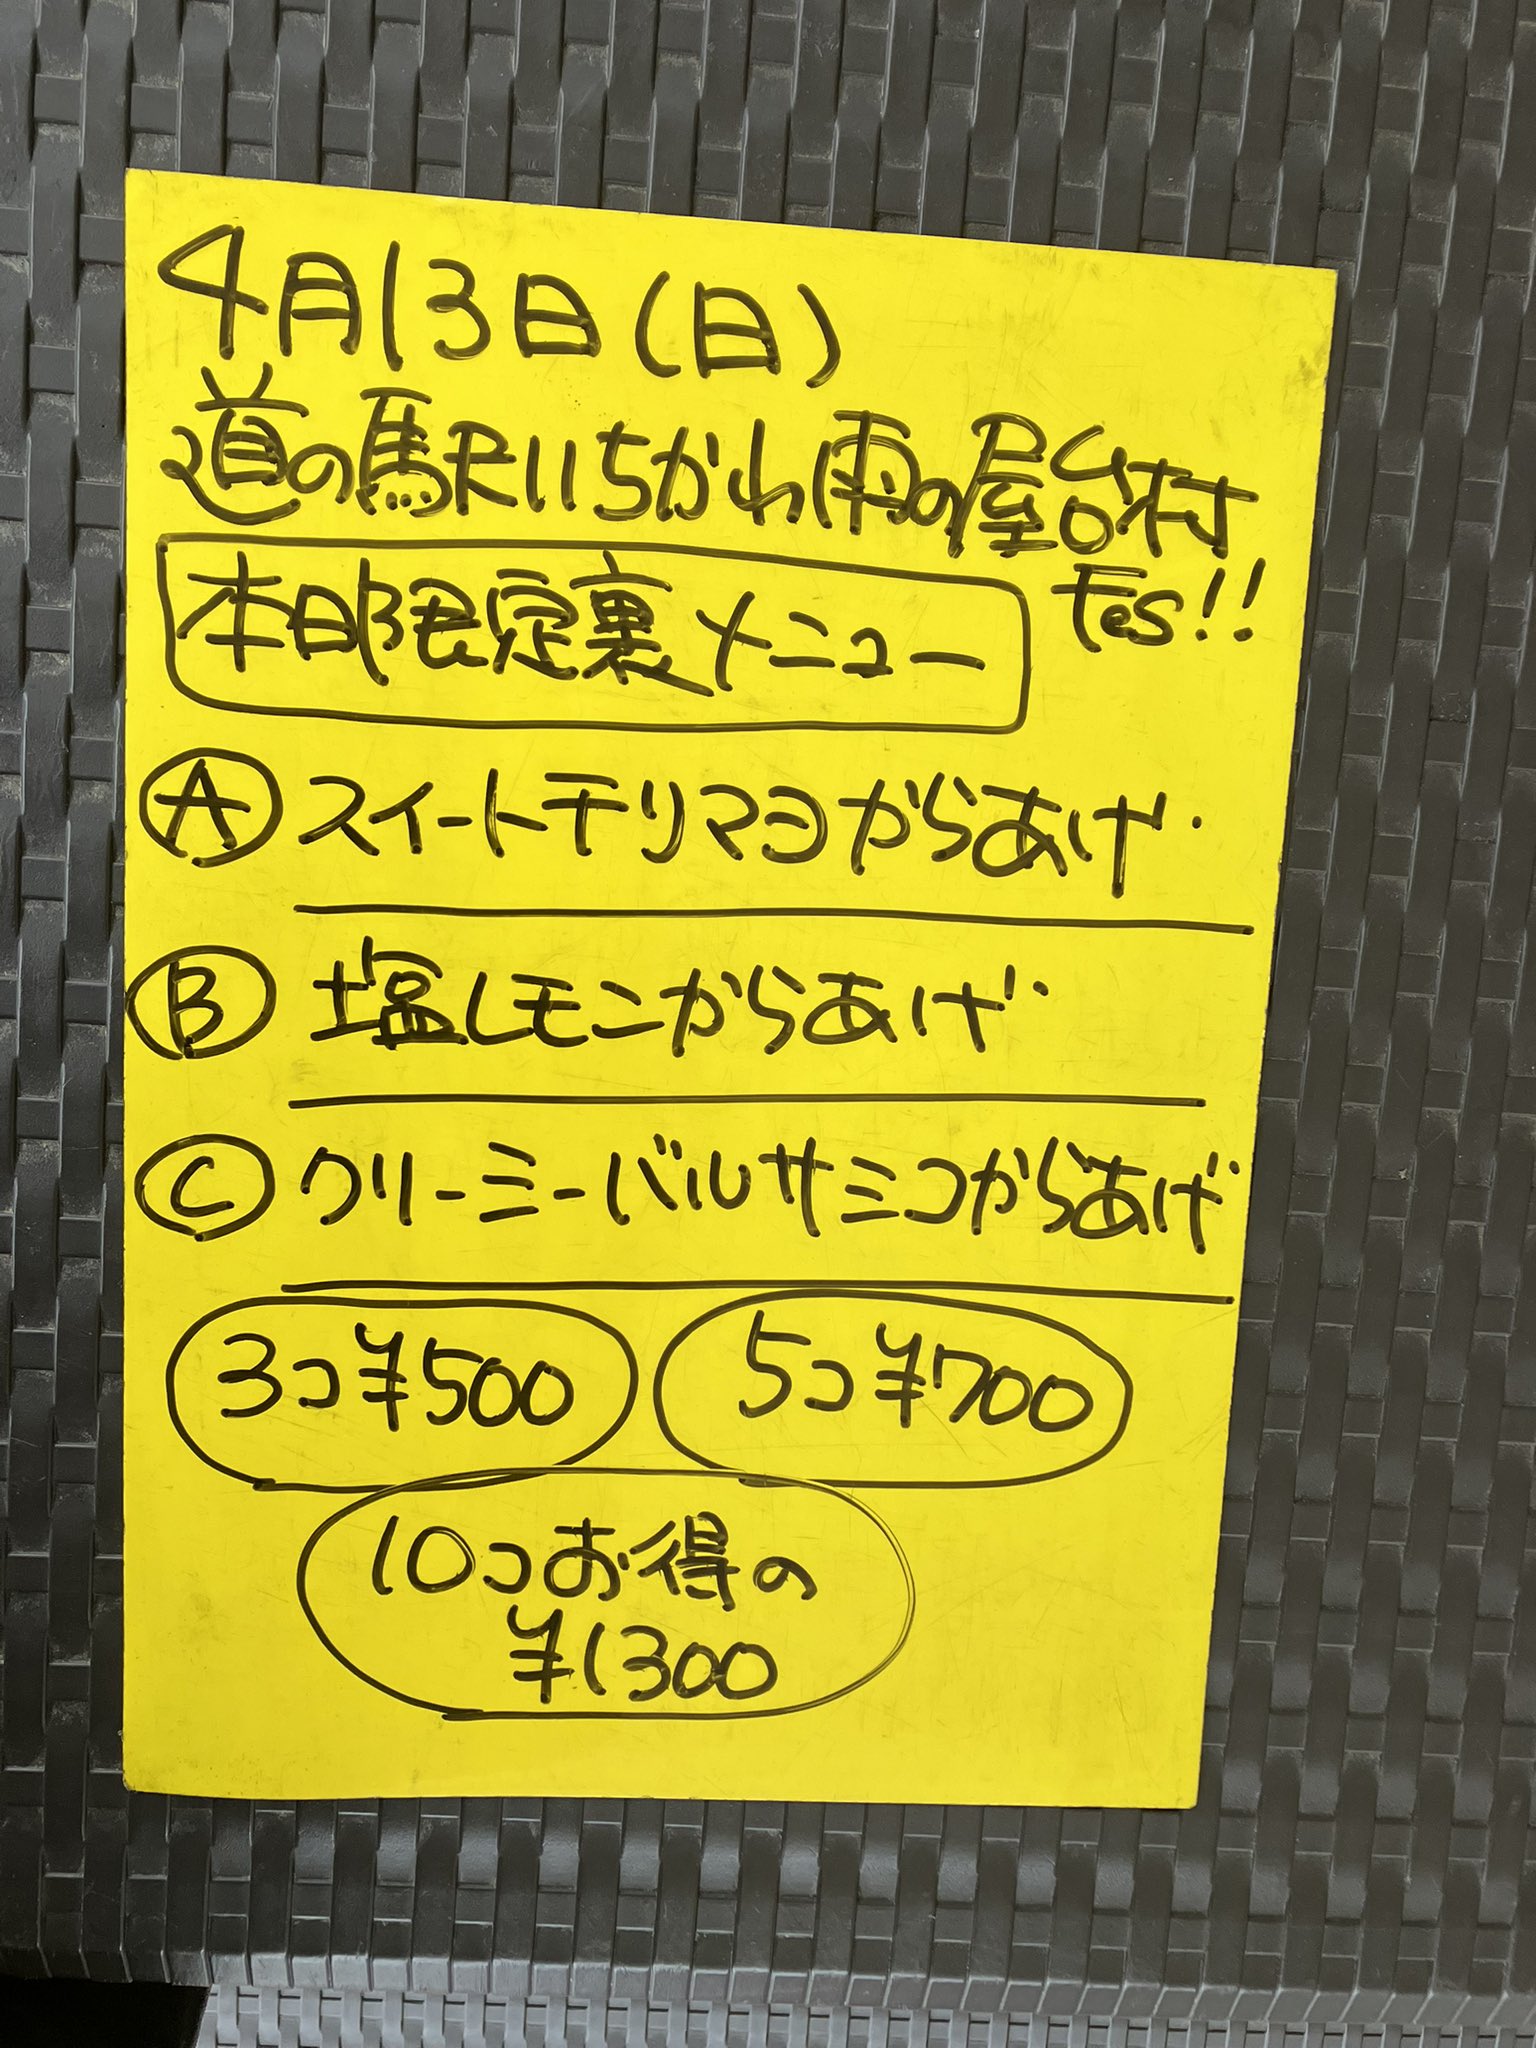 4月13日(日)
道の駅いちかわ雨の屋台村
Fes!!
本日限定裏メニュー
Ⓐ スイートテリマヨからあげ
Ⓑ 塩レモンからあげ
Ⓒ クリーミーバルサミコからあげ
3コ¥500 5コ¥700
10コお得の
¥1300